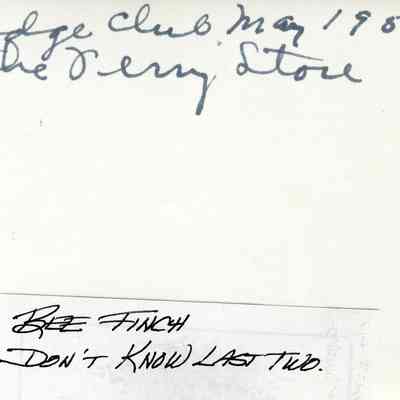 dge Club, May 195
he Terry Store
BEE FINCH
DON'T KNOW LAST TWO.